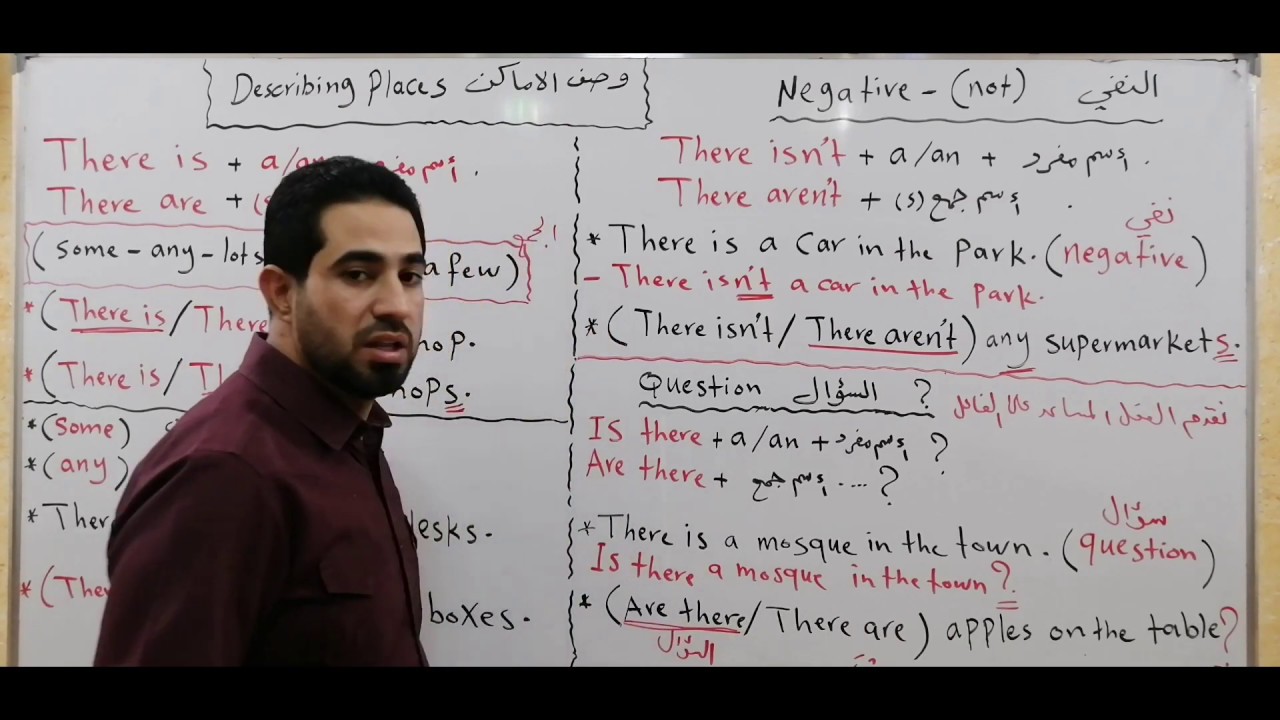 Describing Places وصف الاماكن
There is + a/an اسم مفرد .
There are + (s
(some - any - lots a few)
* (There is / There hop.
* (There is / T hops.
* (some)
* (any)
* Ther desks.
* (Ther boxes.
Negative - (not) النفي
There isn't + a/an + إسم مفرد .
There aren't + (s) إسم جمع .
نفي
* There is a car in the park. (negative)
- There isn't a car in the park.
* (There isn't / There aren't) any supermarkets.
Question السؤال ?
نقدم الفعل المساعد على الفاعل
Is there + a/an + إسم مفرد ?
Are there + إسم جمع .... ?
سؤال
* There is a mosque in the town. (question)
Is there a mosque in the town?
* (Are there / There are) apples on the table?
السؤال